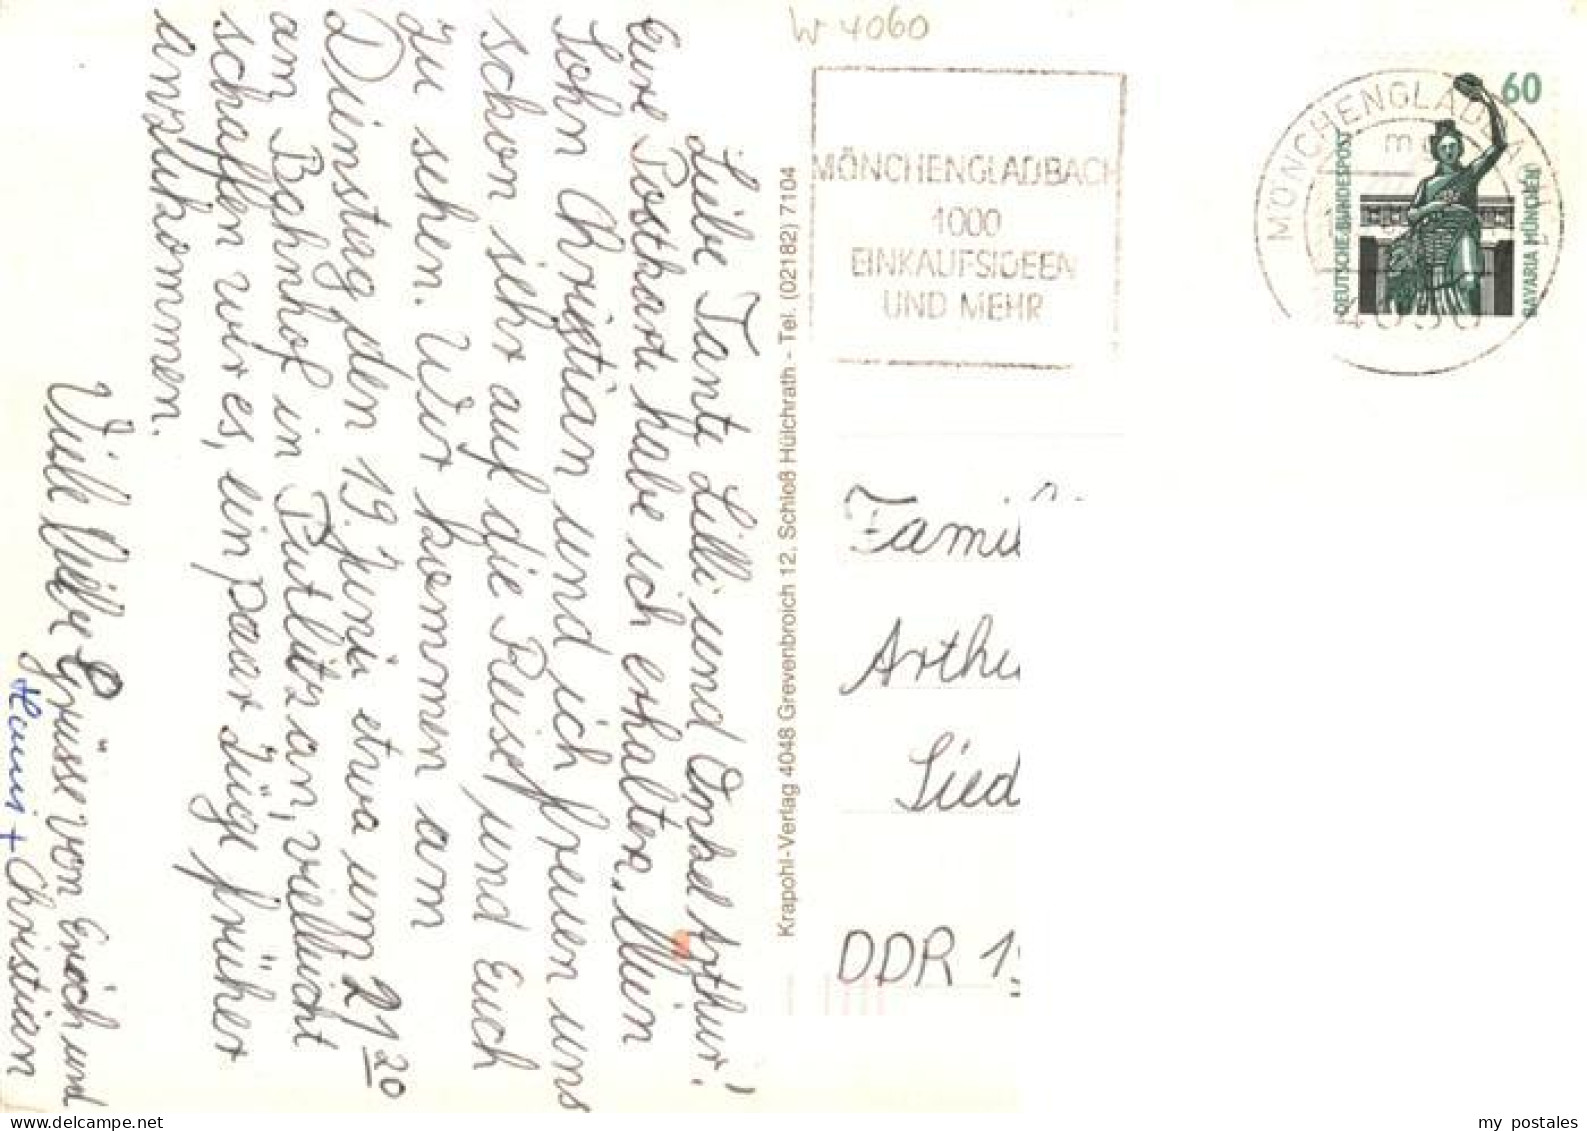 W 4060
MÖNCHENGLADBACH
1000
EINKAUFSIDEEN
UND MEHR
MÖNCHENGLADBA
60
DEUTSCHE BUNDESPOST
BAVARIA MÜNCHEN
Liebe Tante Lilli und Onkel Arthur!
Eure Postkarte habe ich erhalten. Mein
Sohn Christian und ich freuen uns
schon sehr auf die Reise und Euch
zu sehen. Wir kommen am
Dienstag den 19. Juni etwa um 21 20
am Bahnhof in Putlitz an, vielleicht
schaffen wir es, ein paar Züge früher
anzukommen.
Viele liebe Grüsse von Erich und
Hanni + Christian
Krapohl-Verlag 4048 Grevenbroich 12, Schloß Hülchrath - Tel. (02182) 7104
Famil
Arthu
Sied
DDR 19
my postales